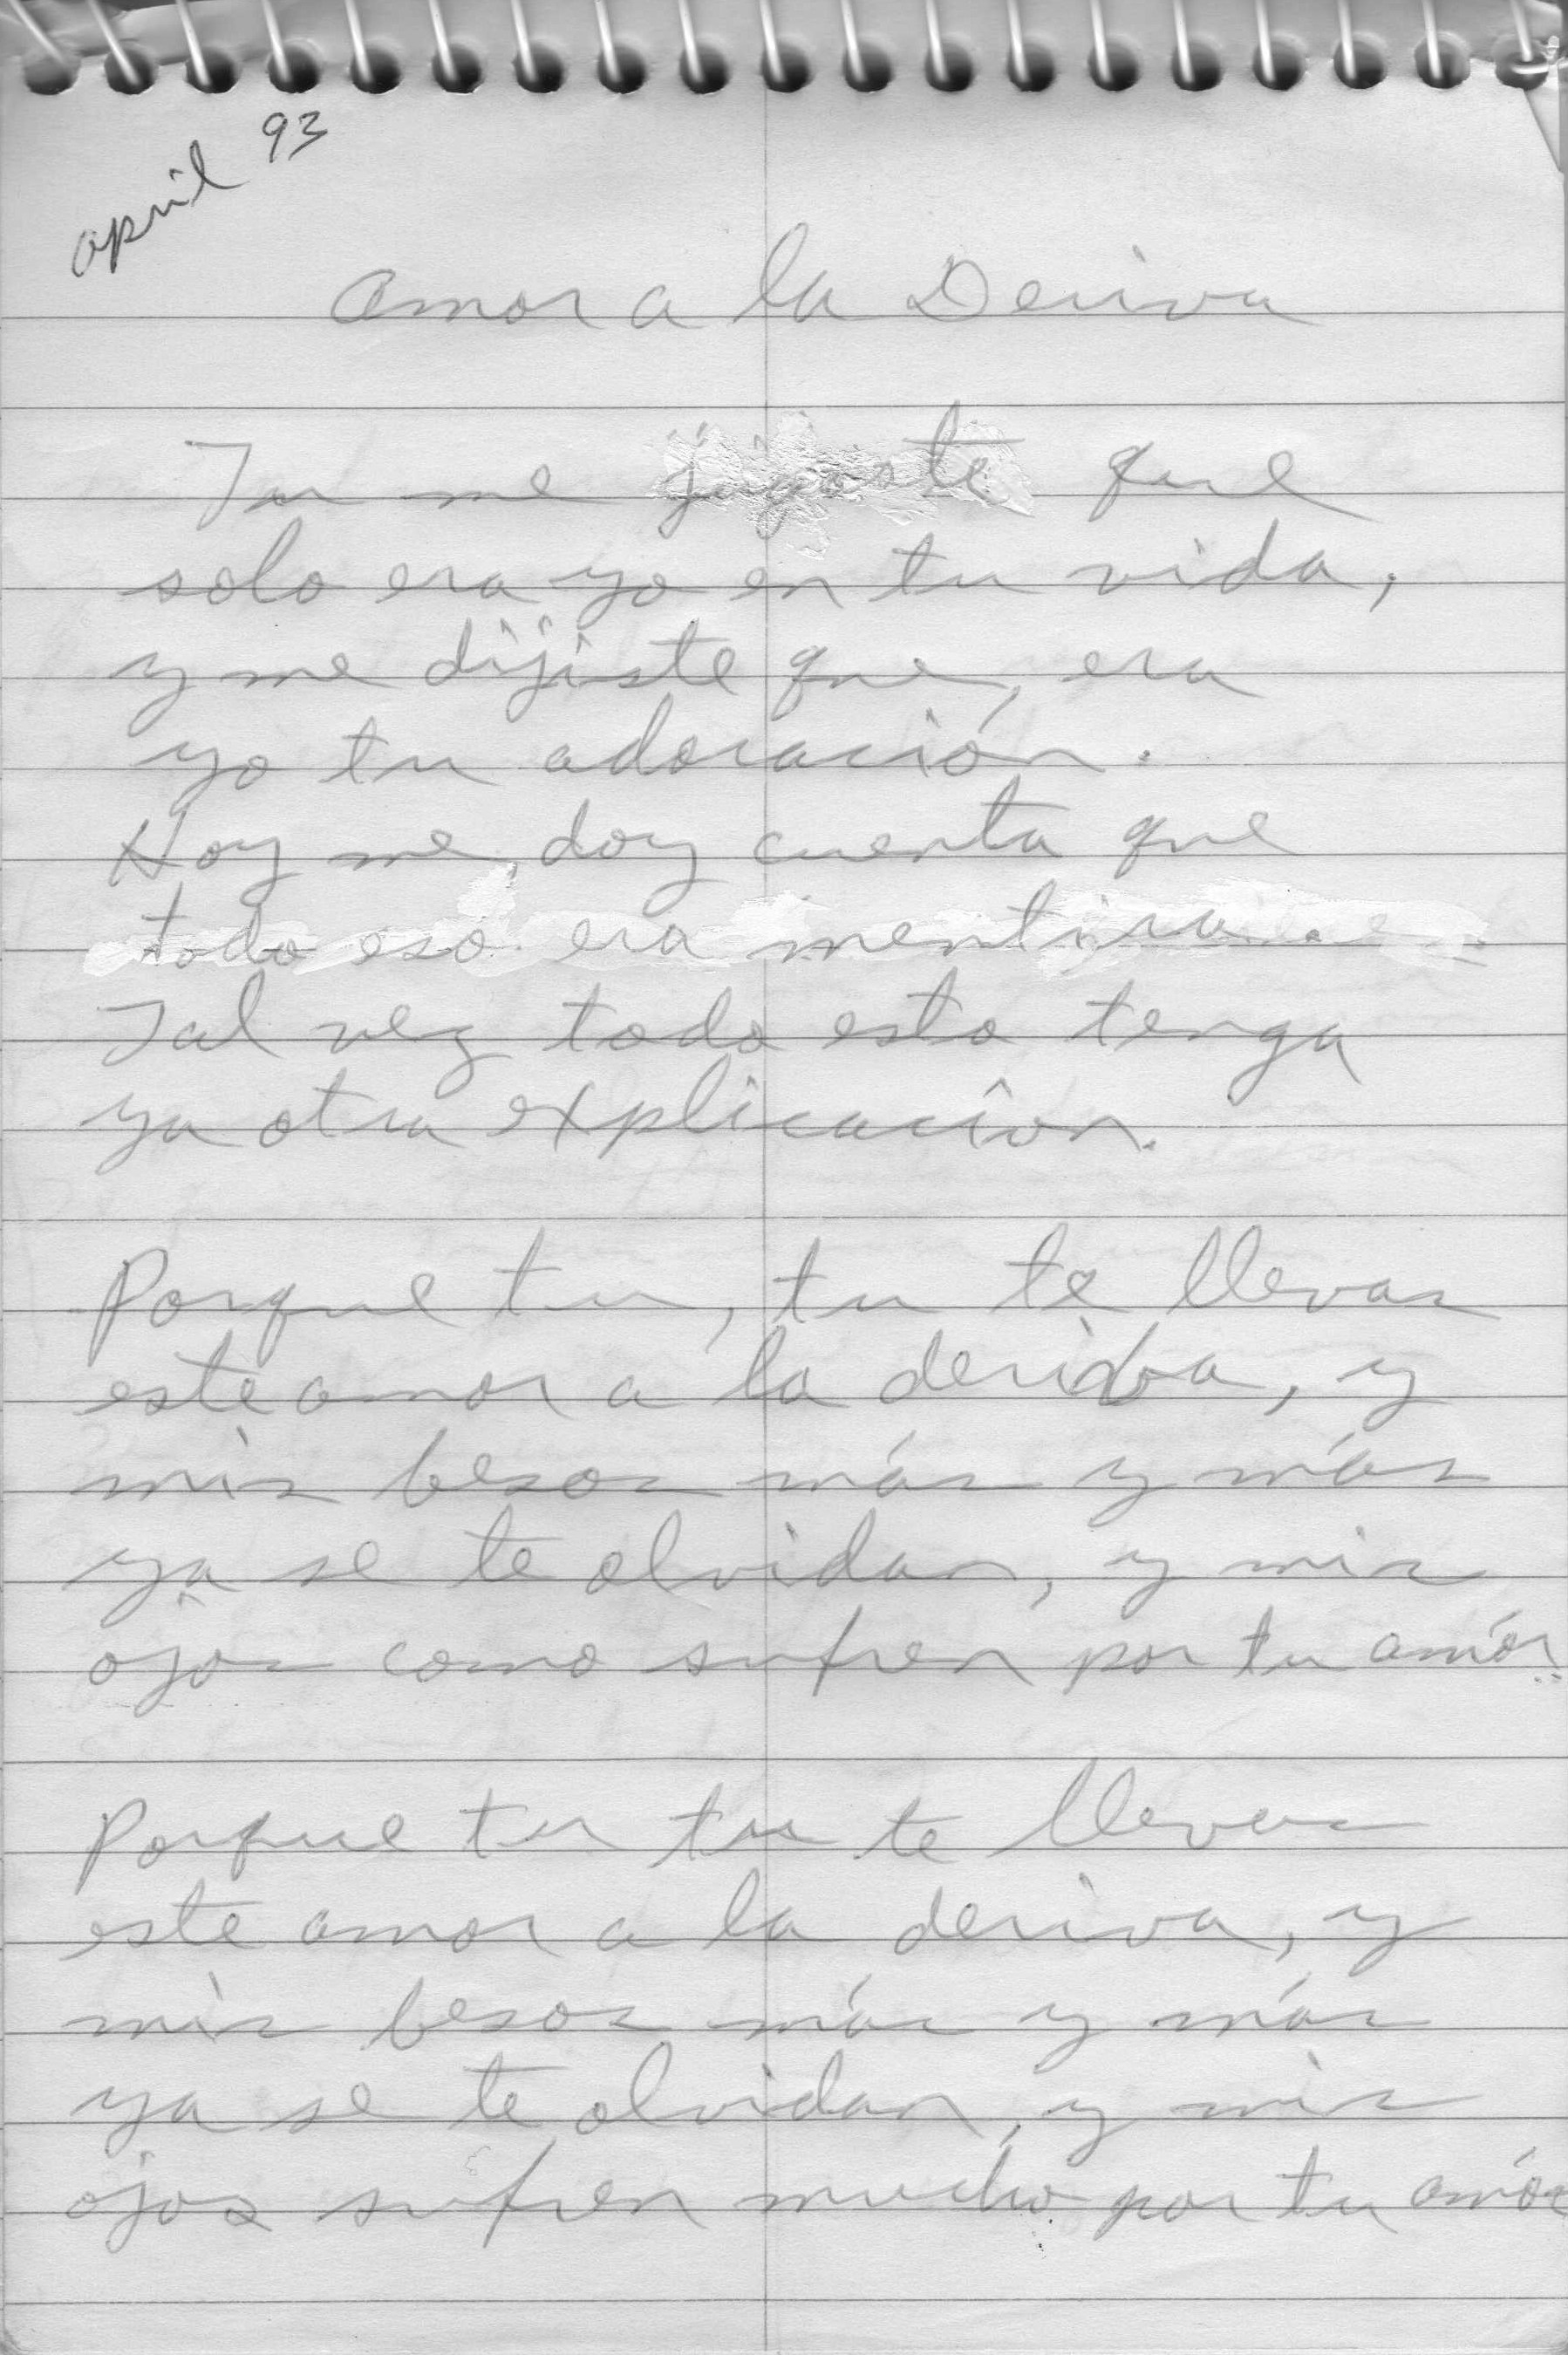 april 93
Amor a la Deriva
Tu me jugaste que
solo era yo en tu vida,
y me dijiste que, era
yo tu adoración.
Hoy me doy cuenta que
todo eso era mentira...
Tal vez todo esto tenga
ya otra explicación.
Porque tu, tu te llevas
este amor a la deriva, y
mis besos más y más
ya se te olvidan, y mis
ojos como sufren por tu amór.
Porque tu tu te llevas
este amor a la deriva, y
mis besos más y más
ya se te olvidan, y mis
ojos sufren mucho por tu amór